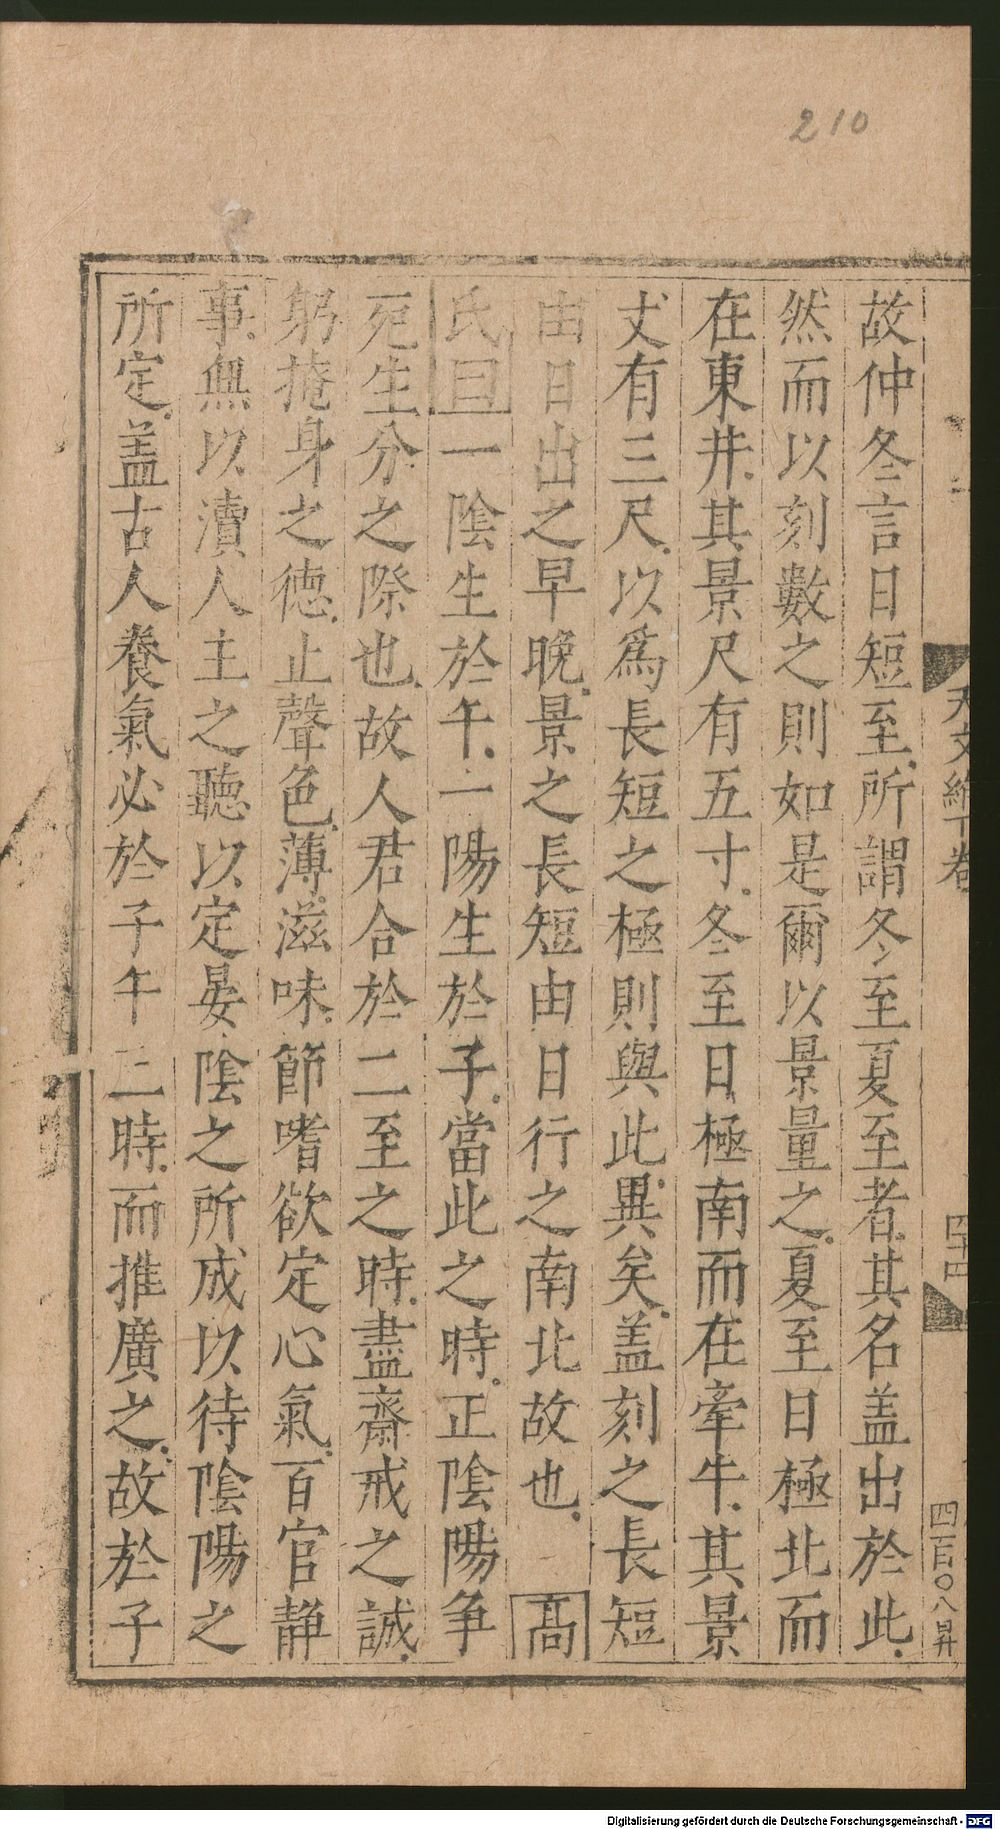 210
天文緯下卷
四十四
四百〇八昇
故仲冬言日短至所謂冬至夏至者其名盖出於此
然而以刻數之則如是爾以景量之夏至日極北而
在東井其景尺有五寸冬至日極南而在牽牛其景
丈有三尺以爲長短之極則與此異矣盖刻之長短
由日出之早晚景之長短由日行之南北故也 高
氏曰一陰生於午一陽生於子當此之時正陰陽争
死生分之際也故人君合於二至之時盡齋戒之誠
躬掩身之德止聲色薄滋味節嗜欲定心氣百官静
事無以瀆人主之聽以定晏陰之所成以待陰陽之
所定盖古人養氣必於子午二時而推廣之故於子
Digitalisierung gefördert durch die Deutsche Forschungsgemeinschaft - DFG